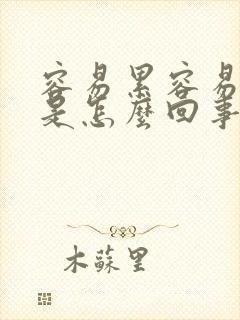 容易累容易
是怎麼回事
木蘇里